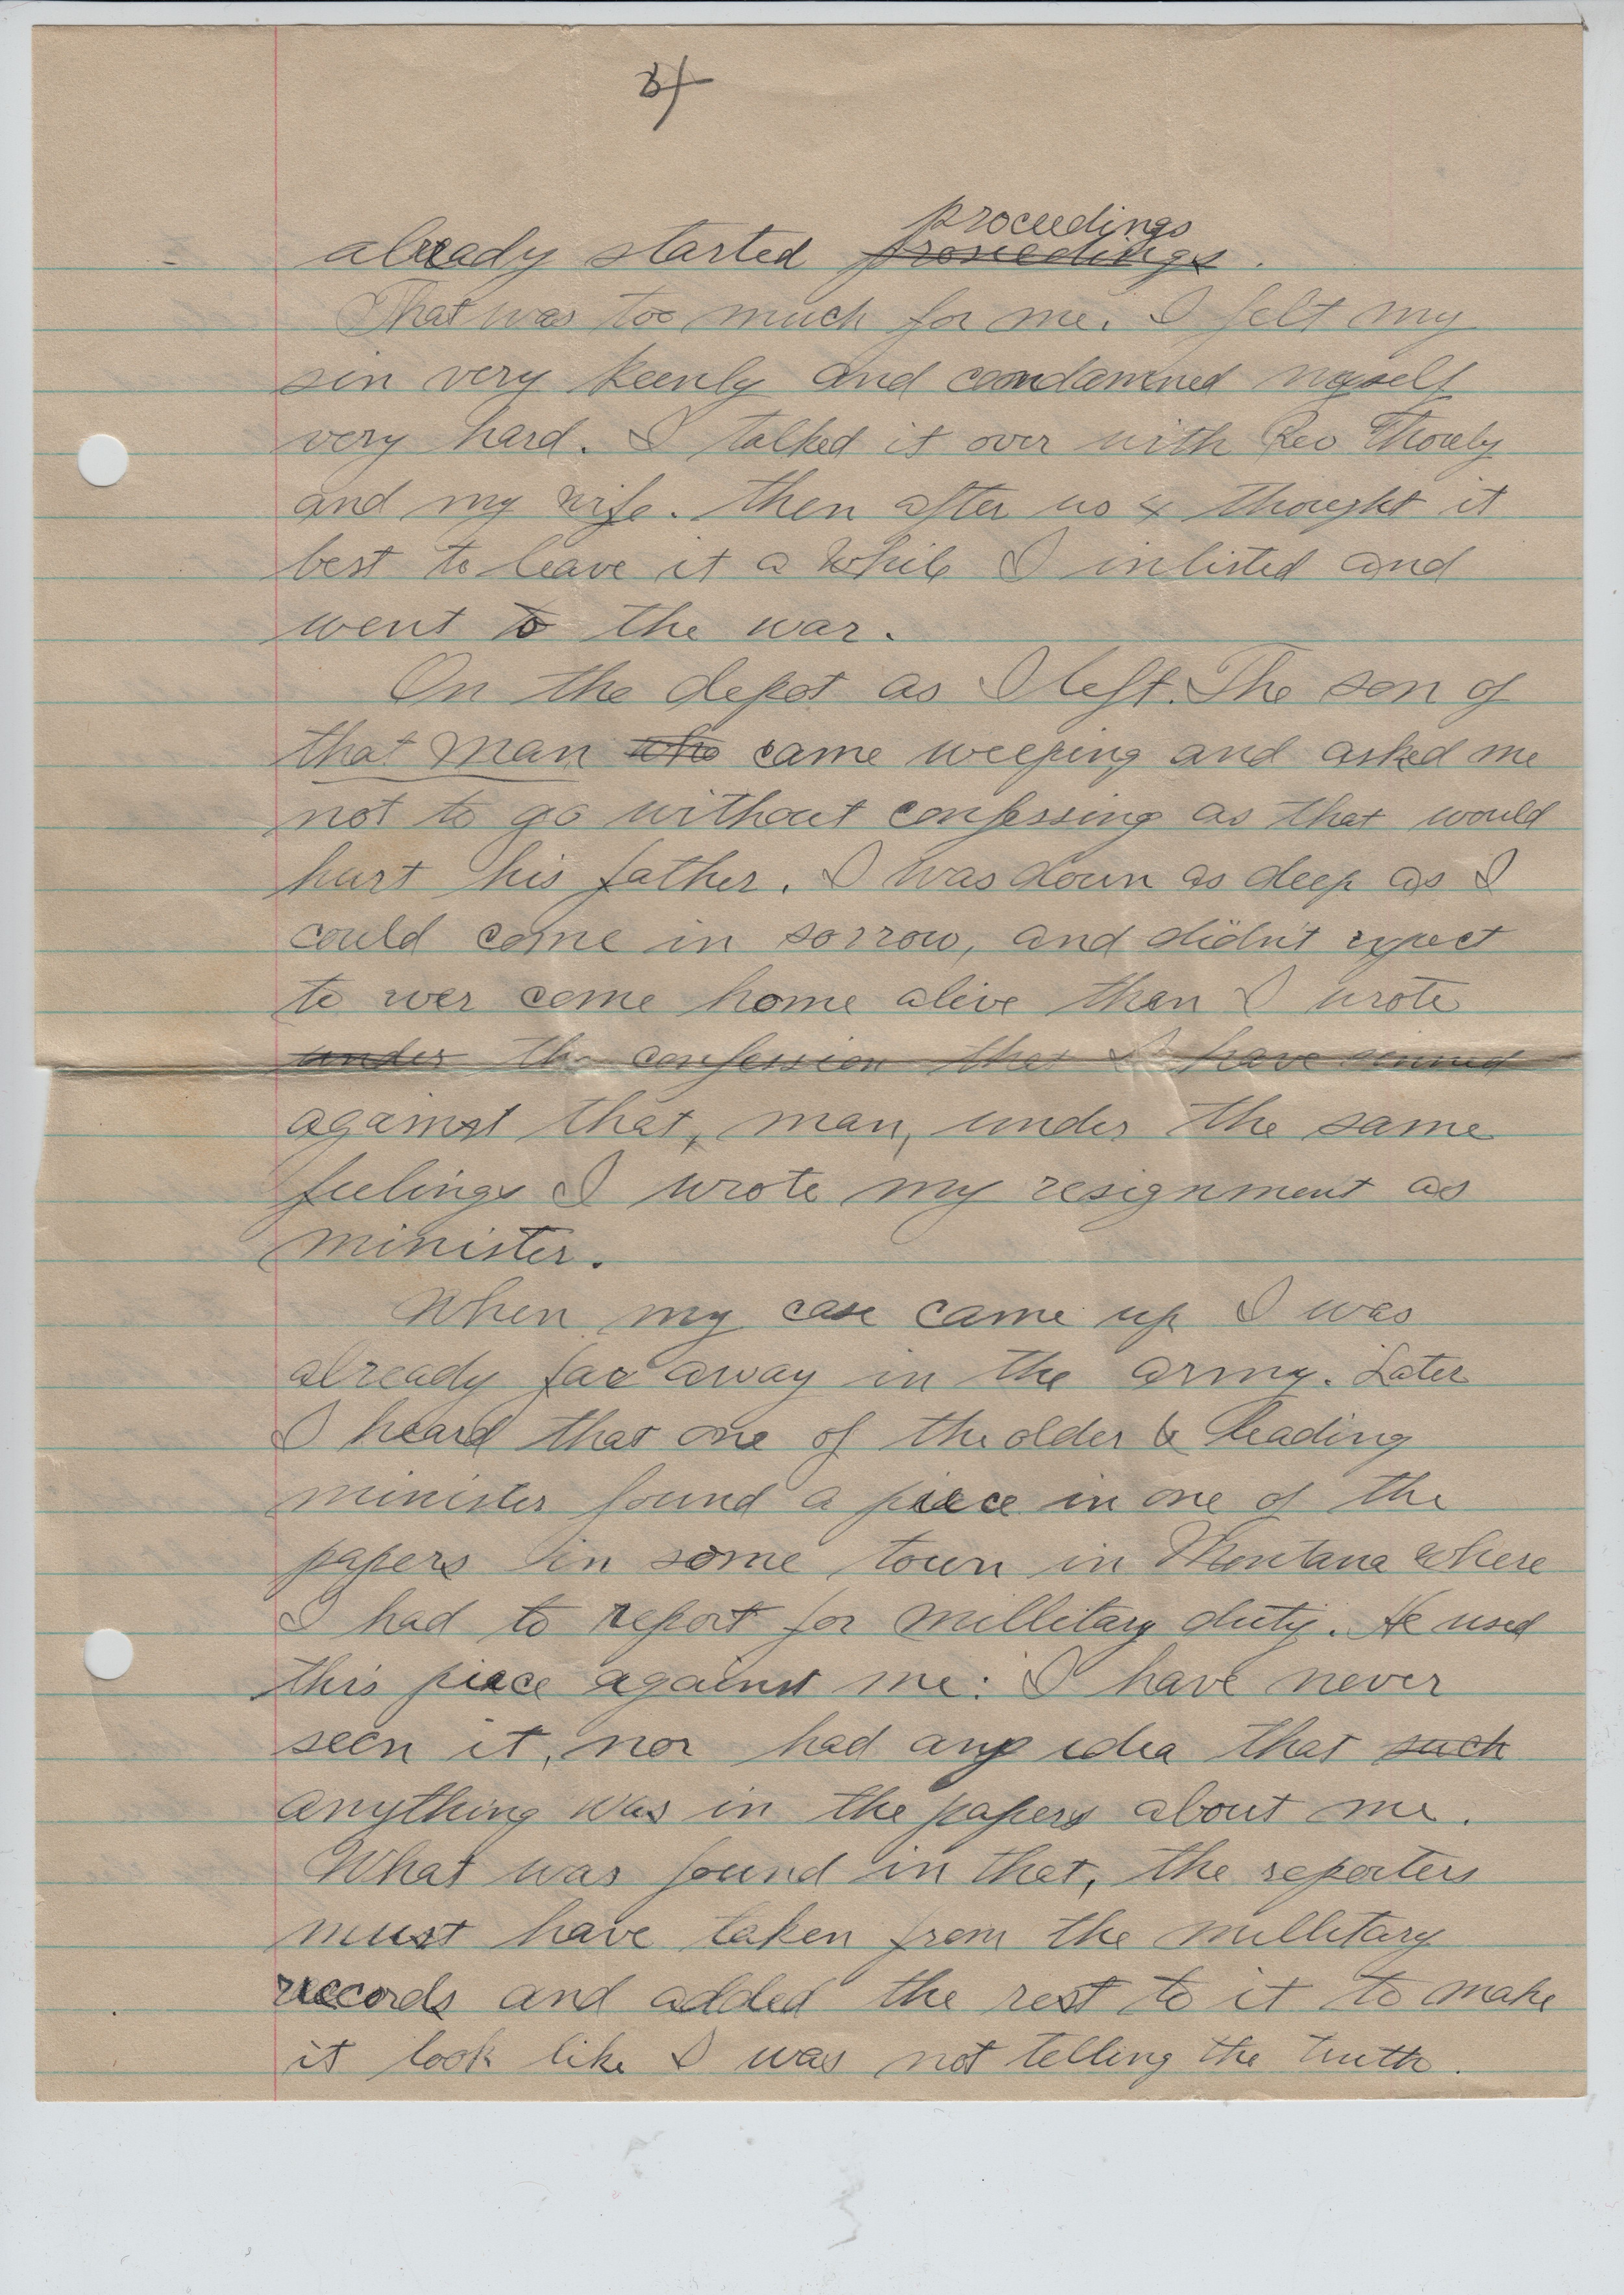 3/
proceedings
already started proseedings.
That was too much for me. I felt my
sin very keenly and condamned myself
very hard. I talked it over with Rev
and my wife. then after us & thought it
best to leave it a while I inlisted and
went to the war.
On the depot as I left. The son of
that man who came weeping and asked me
not to go without confessing as that would
hurt his father. I was down as deep as I
could come in sorrow, and didn't expect
to ever come home alive then I wrote
under the confession that I have sinned
against that, man, under the same
feelings I wrote my resignment as
minister.
When my case came up I was
already far away in the army. Later
I heard that one of the older & leading
minister found a piece in one of the
papers in some town in Montana where
I had to report for millitary duty. He used
this piece against me: I have never
seen it, nor had any idea that such
anything was in the papers about me.
What was found in that, the reporters
must have taken from the millitary
records and added the rest to it to make
it look like I was not telling the truth.